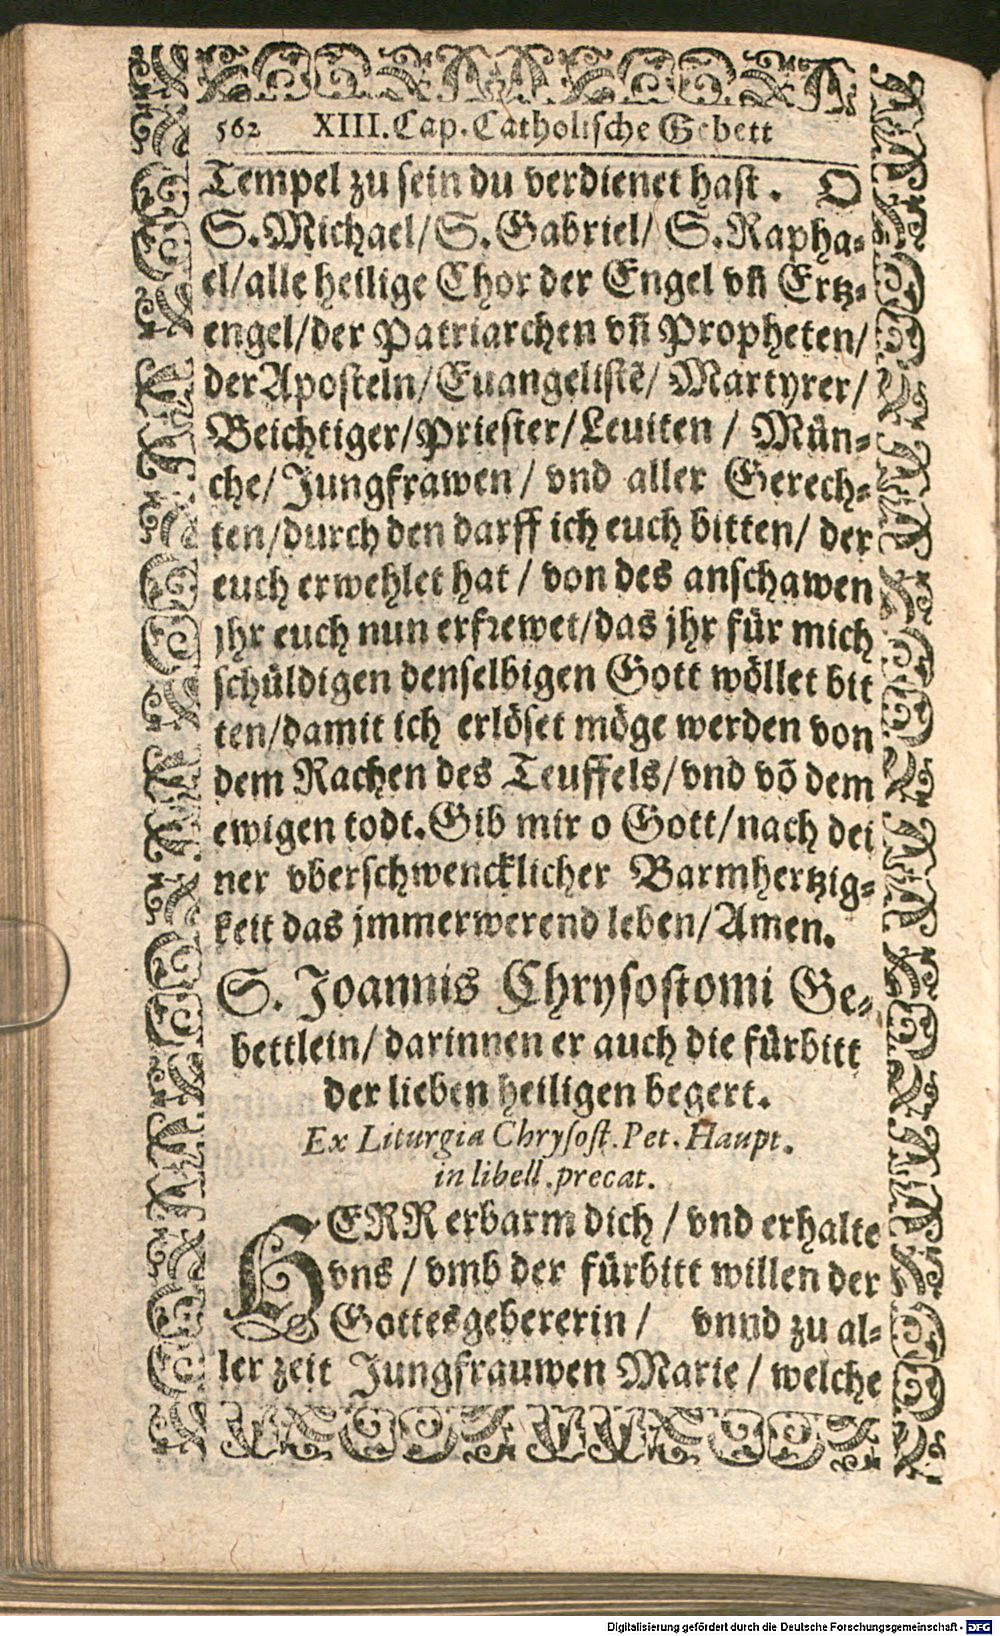 562 XIII. Cap. Catholische Gebett
Tempel zu sein du verdienet hast. O
S. Michael/ S. Gabriel/ S. Rapha-
el/alle heilige Chor der Engel vñ Ertz-
engel/der Patriarchen vñ Propheten/
der Aposteln/Euangelistẽ/ Martyrer/
Beichtiger/Priester/Leuiten / Mün-
che/ Jungfrawen / vnd aller Gerech-
ten/durch den darff ich euch bitten/ der
euch erwehlet hat / von des anschawen
jhr euch nun erfrewet/das jhr für mich
schüldigen denselbigen Gott wöllet bit
ten/damit ich erlöset möge werden von
dem Rachen des Teuffels/vnd võ dem
ewigen todt. Gib mir o Gott/nach dei
ner vberschwencklicher Barmhertzig-
keit das jmmerwerend leben/Amen.
S. Joannis Chrysostomi Ge-
bettlein/ darinnen er auch die fürbitt
der lieben heiligen begert.
Ex Liturgia Chrysost. Pet. Haupt.
in libell. precat.
HERR erbarm dich / vnd erhalte
vns / vmb der fürbitt willen der
Gottesgebererin / vnnd zu al-
ler zeit Jungfrauwen Marie / welche
Digitalisierung gefördert durch die Deutsche Forschungsgemeinschaft - DFG